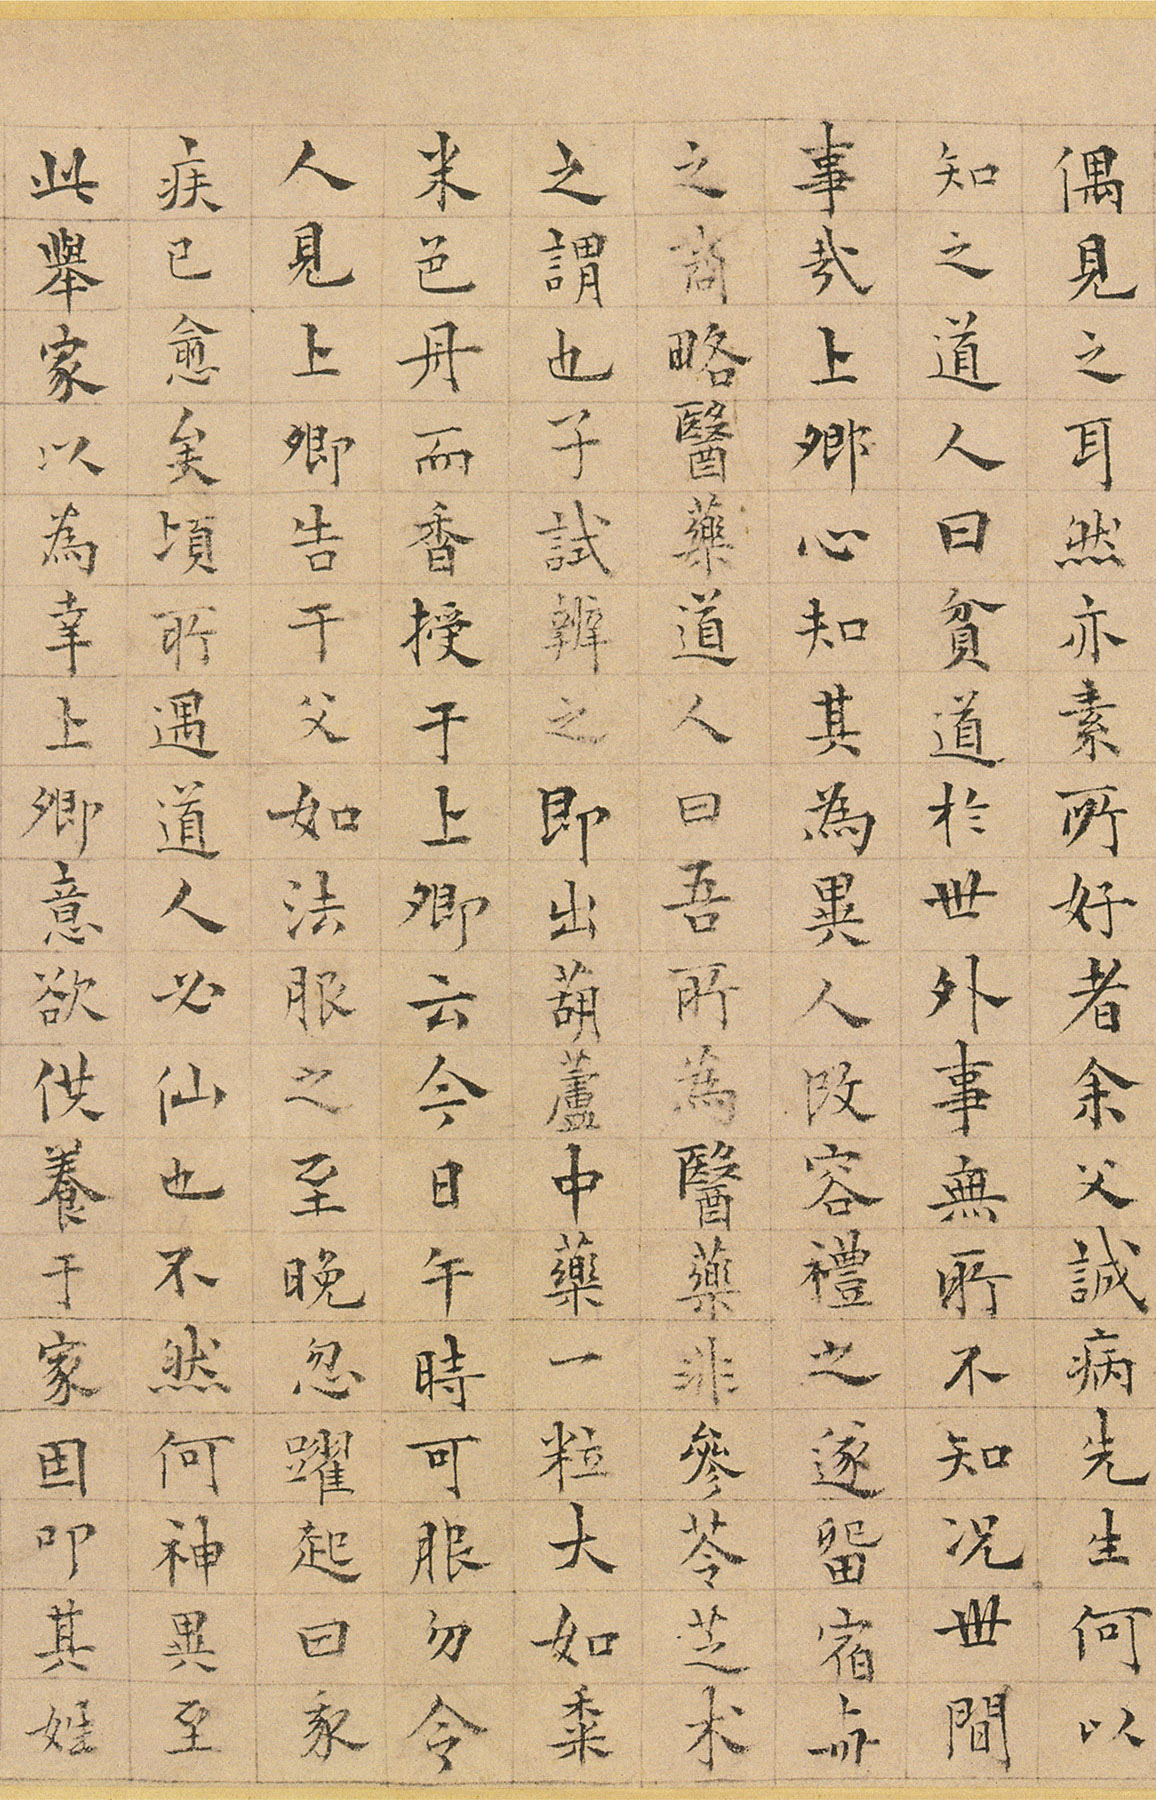 偶見之耳然亦素所好者余父誠病先生何以
知之道人曰貧道於世外事無所不知况世間
事哉上卿心知其為異人改容禮之遂留宿與
之商略醫藥道人曰吾所為醫藥非參苓芝术
之謂也子試辨之即出葫蘆中藥一粒大如黍
米色丹而香授于上卿云今日午時可服勿令
人見上卿告于父如法服之至晚忽躍起曰我
疾已愈矣頃所遇道人必仙也不然何神異至
此舉家以為幸上卿意欲供養于家因叩其姓